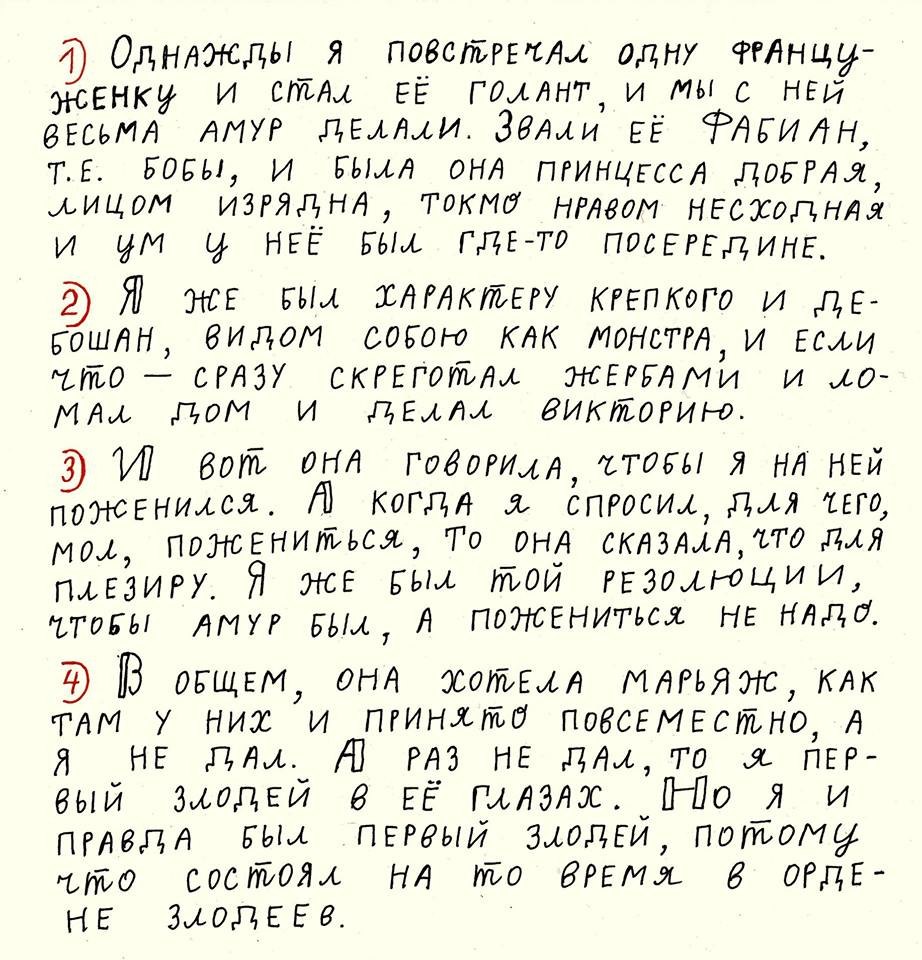 1) Однажды я повстречал одну францу-
женку и стал её голант, и мы с ней
весьма амур делали. Звали её Фабиан,
т.е. бобы, и была она принцесса добрая,
лицом изрядна, токмо нравом несходная
и ум у неё был где-то посередине.
2) Я же был характеру крепкого и де-
бошан, видом собою как монстра, и если
что — сразу скреготал жербами и ло-
мал дом и делал викторию.
3) И вот она говорила, чтобы я на ней
поженился. А когда я спросил, для чего,
мол, пожениться, то она сказала, что для
плезиру. Я же был той резолюции,
чтобы амур был, а пожениться не надо.
4) В общем, она хотела марьяж, как
там у них и принято повсеместно, а
я не дал. А раз не дал, то я пер-
вый злодей в её глазах. Но я и
правда был первый злодей, потому
что состоял на то время в орде-
не злодеев.